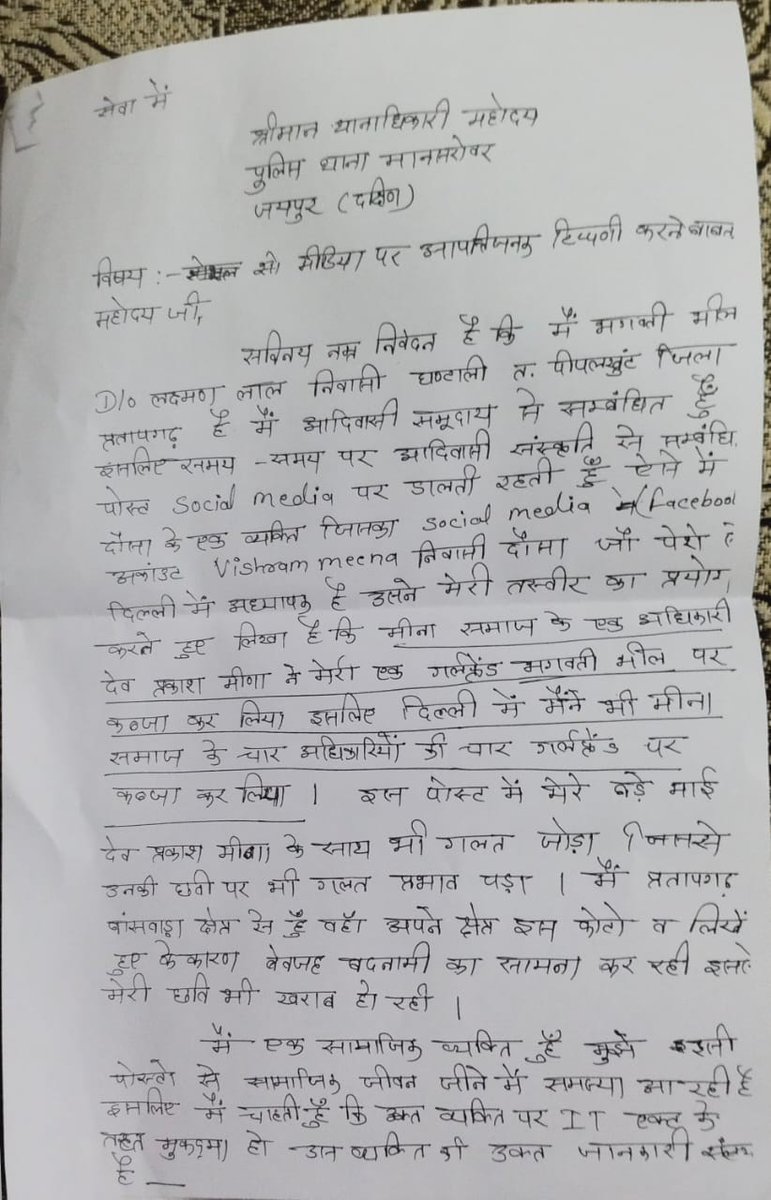 सेवा में
श्रीमान थानाधिकारी महोदय
पुलिस थाना मानसरोवर
जयपुर (दक्षिण)
विषय :- सो मीडिया पर आपत्तिजनक टिप्पणी करने बाबत
महोदय जी,
सविनय नम्र निवेदन है कि मैं भगवती भील
D/o लक्ष्मण लाल निवासी घण्टाली त. पीपलखुंट जिला
प्रतापगढ़ है मैं आदिवासी समूदाय से सम्बंधित हूँ
इसलिए समय -समय पर आदिवासी संस्कृति से सम्बंधि
पोस्ट social media पर डालती रहती हूँ ऐसे में
दौसा के एक व्यक्ति जिसका social media (Facebool
अकांउट Vishram meena निवासी दौसा जो पेशे
दिल्ली में अध्यापक है उसने मेरी तस्वीर का प्रयोग
करते हुए लिखा है कि मीना समाज के एक अधिकारी
देव प्रकाश मीणा ने मेरी एक गर्लफ्रेंड भगवती भील पर
कब्जा कर लिया इसलिए दिल्ली में मैंने भी मीना
समाज के चार अधिकारियों की चार गर्लफ्रेंड पर
कब्जा कर लिया । इस पोस्ट में मेरे बड़े भाई
देव प्रकाश मीणा के साथ भी गलत जोड़ा जिससे
उनकी छवी पर भी गलत प्रभात पड़ा । मैं प्रतापगढ़
बांसवाड़ा क्षेत्र से हूँ वहाँ अपने क्षेत्र इस फोटो व लिखें
हुए के कारण बेवजह बदनामी का सामना कर रही इससे
मेरी छवि भी खराब हो रही ।
मैं एक सामाजिक व्यक्ति हूँ मुझे इसी
पोस्टो से सामाजिक जीवन जीने में समस्या आ रही है
इसलिए मैं चाहती हूँ कि उक्त व्यक्ति पर IT एक्ट के
तहत मुकदमा हो उस व्यक्ति की उक्त जानकारी संलग्न
है —